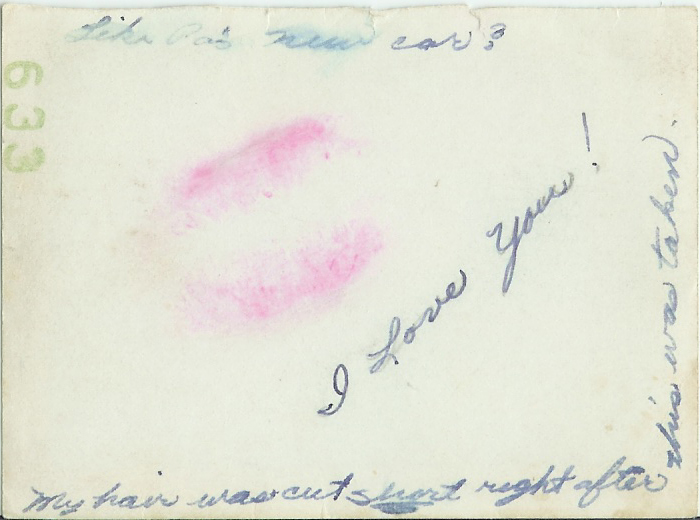 Like Pa's new car?
633
I Love You!
My hair was cut short right after
this was taken.